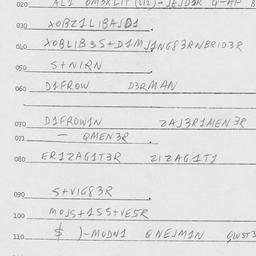 020 AL1 OM3XLIT (2(2)-JEJD1R U-AP 8
030 XOBZ1LIBAJD1
040 XOBLIB3S+D1MJ1NG83RNBRID3R
050 S+NIRN
060 D1FROW D3RMAN
070 D1FROW1N ZAJ3R1MEN3R
071 — QMEN3R
080 ER1ZAG1T3R ZIZAG1T1
090 S+VIG83R
100 MOJS+1SS+VE5R
110 $ )-MODN1 QNEJM1N QWST3